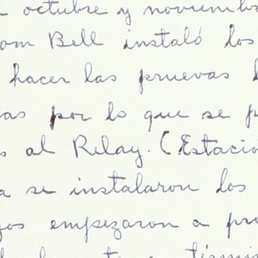 octubre y noviemb
om Bell instaló los
hacer las pruevas
as por lo que se p
s al Relay. (Estacio
a se instalaron los
os empezaron a pr